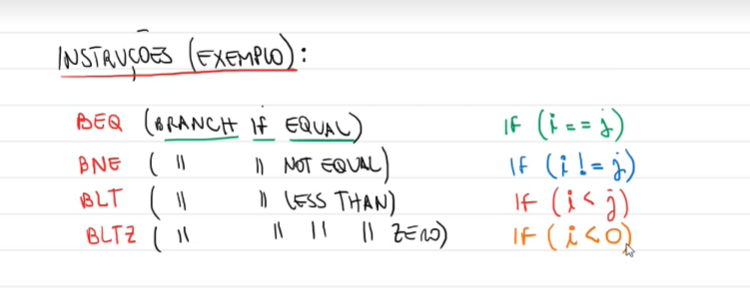 INSTRUÇÕES (EXEMPLO):
BEQ (BRANCH IF EQUAL) IF (i == j)
BNE ( " " NOT EQUAL) IF (i != j)
BLT ( " " LESS THAN) IF (i < j)
BLTZ ( " " " " ZERO) IF (i < 0)